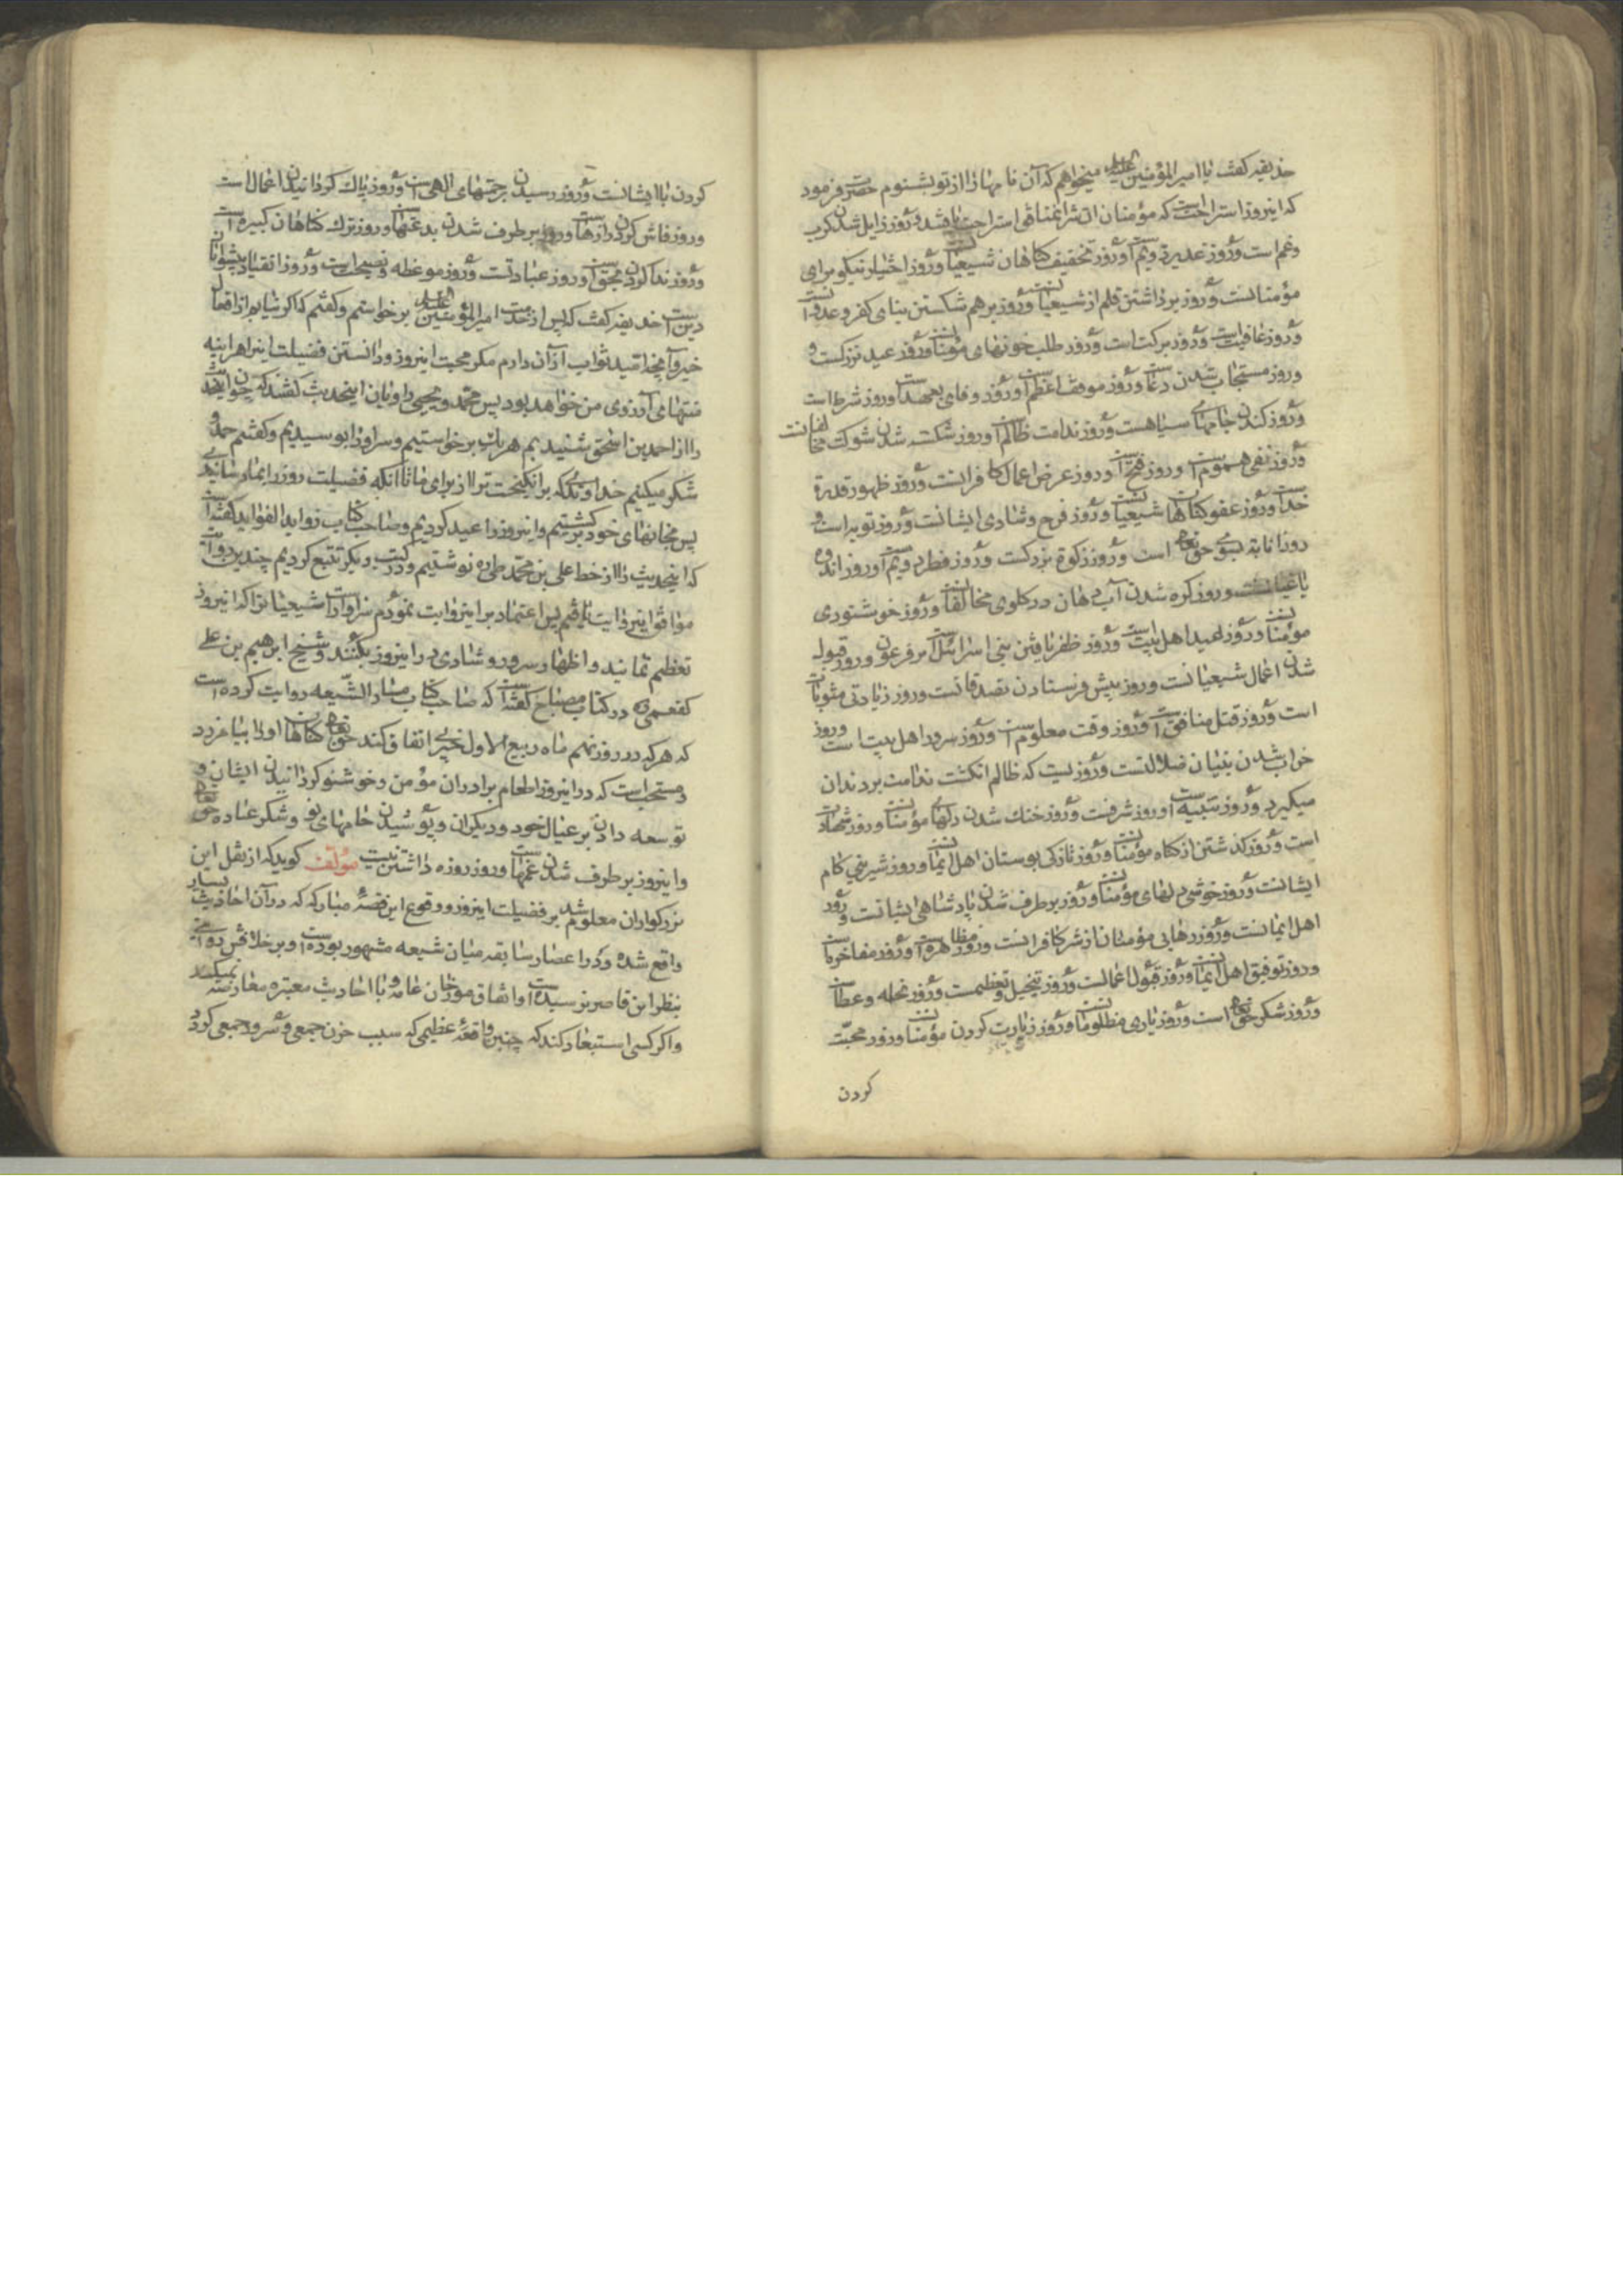 حذیفه کفت یا امیر المؤمنین علیه میخواهم که آن نامها را از تو بشنوم حضرت فرمود
که اینروز استراحتست که مؤمنان از شر ان منافق استراحت یافتند و روز زایل شدن کرب
وغم است و روز غدیر دویم است و روز تخفیف کناهان شیعیانست و روز اختیار نیکو برای
مؤمنانست و روز برداشتن قلم از شیعیانست و روز برهم شکستن بنای کفر و عدوانست
و روز عافیتست و روز برکت است و روز طلب خونهای مؤمنانست و روز عید بزرکست و
وروز مستجاب شدن دعاست و روز موقف اعظم است و روز وفای بعهد است و روز شرط است
و روز کندن جامهای سیاهست و روز ندامت ظالم است و روز شکسته شدن شوکت مخالفانست
و روز نفی هموم است و روز فتح است و روز عرض اعمال کافرانست و روز ظهور قدرة
خداست و روز عفو کناهان شیعیانست و روز فرح و شادی ایشانست و روز توبه است و
روز انابة بسوی حق تعالی است و روز زکوة بزرکست و روز فطر دویم است و روز اندوه
یاغیانست و روز کره شدن آب دهان در کلوی مخالفانست و روز خوشنودی
مؤمنانست و روز عید اهل بیت است و روز ظفر یافتن بنی اسرائیل بر فرعون و روز قبول
شدن اعمال شیعیانست و روز پیش فرستادن تصدقاتست و روز زیادتی مثوبات
است و روز قتل منافق است و روز وقت معلوم است و روز سرور اهل بیت است و روز
خراب شدن بنیان ضلالتست و روزیست که ظالم انکشت ندامت بردندان
میکیرد و روز تنبیه است و روز شرفست و روز خنك شدن دلهای مؤمنانست و روز شهادت
است و روز کذشتن از کناه مؤمنانست و روز تازکی بوستان اهل ایمانست و روز شیرینی کام
ایشانست و روز خوشی دلهای مؤمنانست و روز برطرف شدن پادشاهی ایشانست و روز
اهل ایمانست و روز رهایی مؤمنان از شر کافرانست و روز مظاهره است و روز مفاخرت
و روز توفیق اهل ایمانست و روز قبول اعمالست و روز تبجیل و تعظیمست و روز نحله و عطاست
و روز شکر حق تعالی است و روز یاری مظلومانست و روز زیارت کردن مؤمنانست و روز محبت
کردن
کردن با ایشانست و روز رسیدن برحمتهای الهی است و روز پاك کردانیدن اعمال است
و روز فاش کردن رازهاست و روز برطرف شدن بدعتهاست و روز ترك کناهان کبیره است
و روز ندا کردن بحق است و روز عبادتست و روز موعظه و نصیحت است و روز انقیاد پیشوایان
دین است حذیفه کفت که پس از خدمت امیر المؤمنین علیه برخواستم و کفتم که اکر نیابم از افعال
خیر و آنچه امید ثواب از آن دارم مکر محبت اینروز و دانستن فضیلت اینرا هراینه
منتهای آرزوی من خواهد بود پس محمد و یحیی راویان اینحدیث کفتند که چون اینحدیث
را از احمد بن اسحق شنیدیم هر یك برخواستیم و سر او را بوسیدیم و کفتیم حمد و
شکر میکنیم خداوندی که برانکیخت ترا از برای ما تا آنکه فضیلت روز را بما رسانیدی
پس بخانهای خود برکشتیم و اینروز را عید کردیم و صاحب کتاب زواید الفواید کفته است
که اینحدیث را از خط علی بن محمد طی ره نوشتیم و در کتب دیکر تتبع کردیم چندین روایت
موافق اینروایت یافتیم پس اعتماد بر اینروایت نمودم سزاوار است شیعیانرا که اینروز
تعظیم نمایند و اظهار سرور و شادی در اینروز بکنند و شیخ ابرهیم بن علی
کفعمی ره در کتاب مصباح کفته است که صاحب کتاب مسار الشیعه روایت کرده است
که هر که در روز نهم ماه ربیع الاول خیری انفاق کند حق تعالی کناهان اورا بیامرزد
ومستحب است که در اینروز اطعام برادران مؤمن و خوشنو کردانیدن ایشان و
توسعه دادن بر عیال خود و دیکران و پوشیدن جامهای نو و شکر عبادة حق تعالی
و اینروز برطرف شدن غمهاست و روز روزه داشتن نیست مؤلف کوید که از نقل این
بزرکواران معلوم شد بر فضیلت اینروز و وقوع این قصۀ مبارکه که در آن احادیث بسیار
واقع شده و در اعصار سابقه میان شیعه مشهور بوده است و برخلافش روایتی
بنظر این قاصر نرسیده است و اتفاق مورخان عامه با احادیث معتبره معارضه نمیکند
و اکر کسی استبعاد کند که چنین واقعۀ عظیمی که سبب حزن جمعی و سرور جمعی کردد